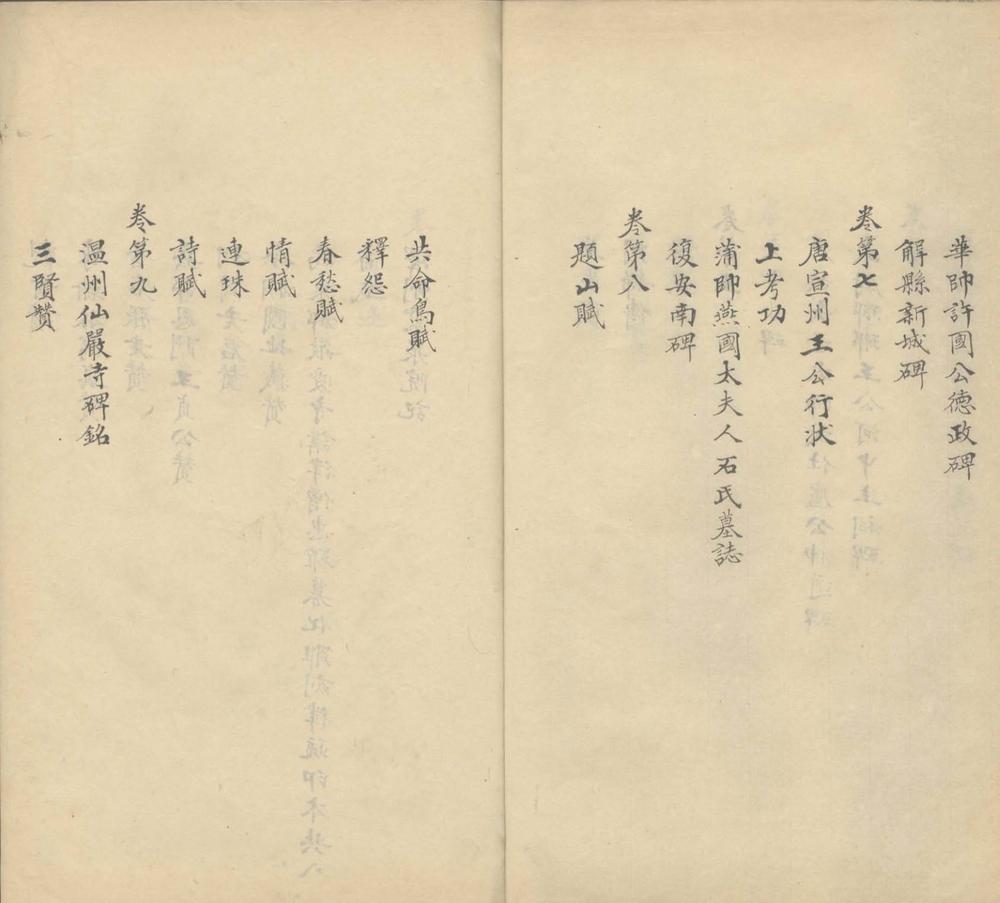 華帥許國公德政碑
解縣新城碑
卷第七
唐宣州王公行状
上考功
蒲帥燕國太夫人石氏墓誌
復安南碑
卷第八
題山賦
共命鳥賦
釋怨
春愁賦
情賦
連珠
詩賦
卷第九
温州仙巖寺碑銘
三賢贊